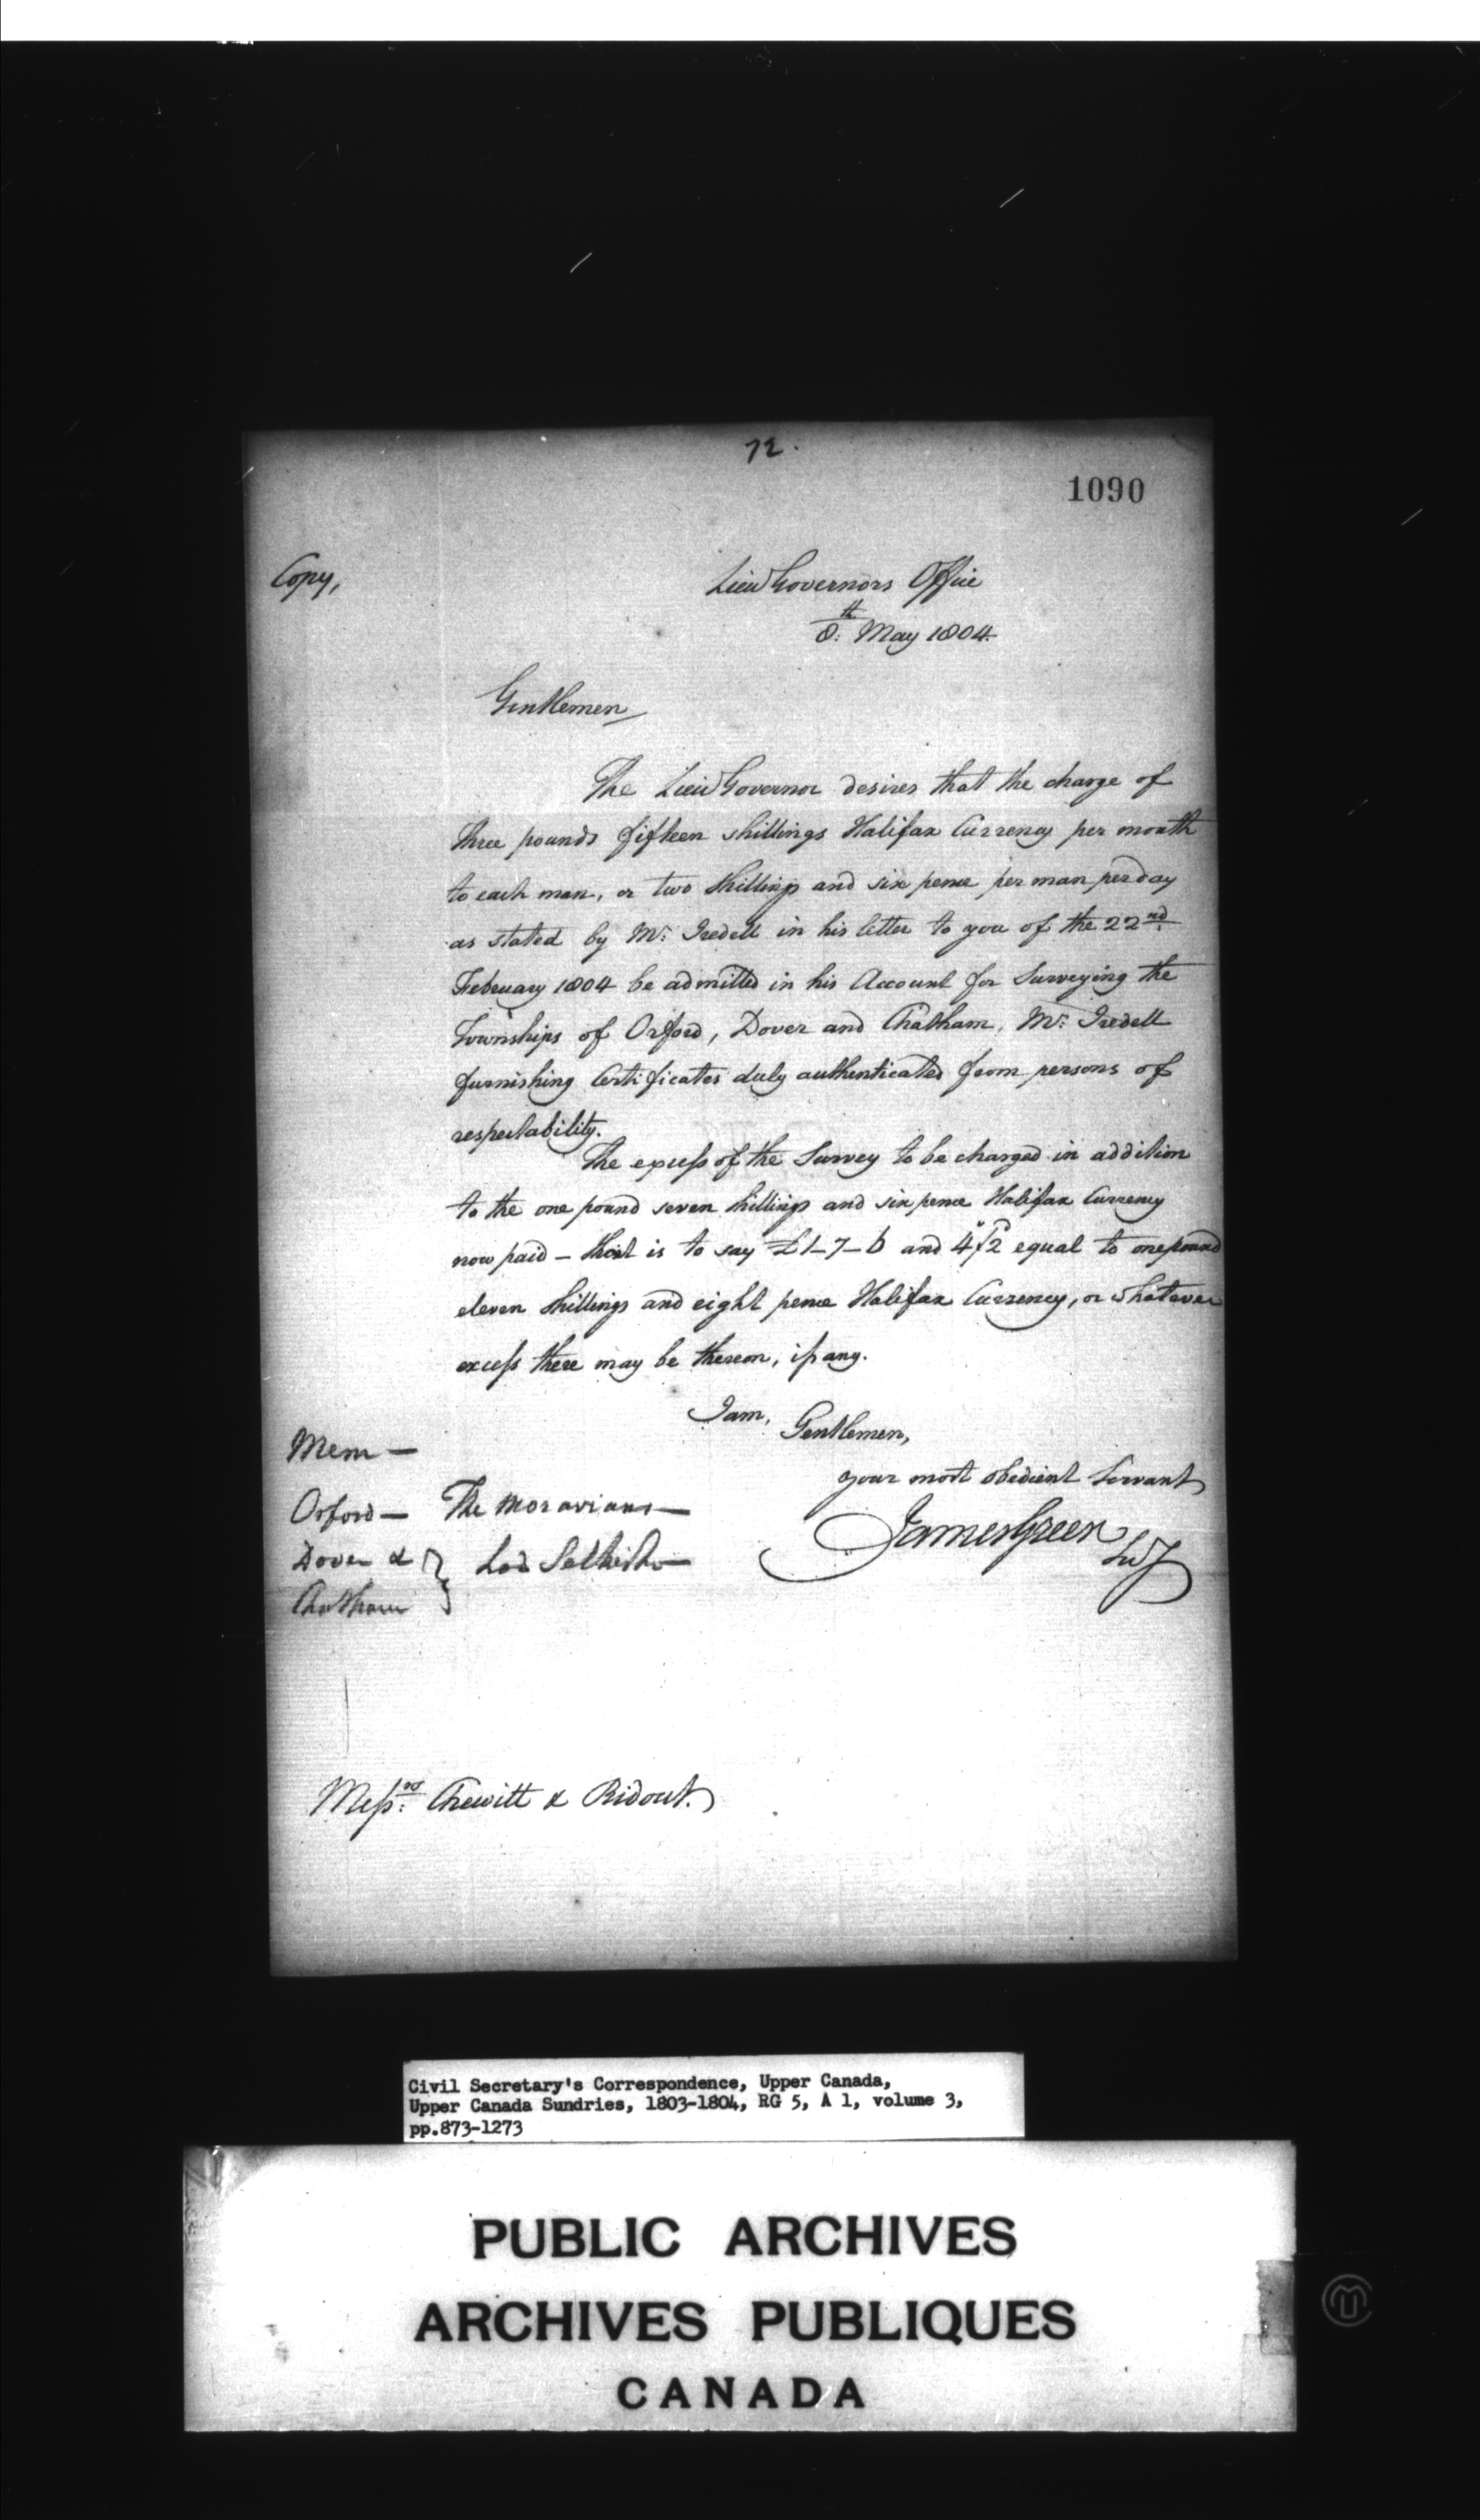 72.
1090
Copy,
Lieu Governors Office
8:th May 1804.
Gentlemen
The Lieu Governor desires that the charge of
three pounds fifteen shillings Halifax Currency per month
to each man, or two shillings and six pence per man per day
as stated by Mr: Iredell in his letter to you of the 22nd
February 1804 be admitted in his Account for Surveying the
Townships of Orford, Dover and Chatham, Mr: Iredell
furnishing Certificates duly authenticated from persons of
respectability.
The excess of the Survey to be charged in addition
to the one pound seven shillings and six pence Halifax Currency
now paid - that is to say £1-7-6 and 4/2 equal to one pound
eleven shillings and eight pence Halifax Currency, or whatever
excess there may be thereon, if any.
I am,
Gentlemen,
your most obedient Servant
James Green
Secy
Mem -
Orford - The Moravians -
Dover & } Lod Selkirk -
Chatham
Messrs: Chewitt & Ridout.
Civil Secretary's Correspondence, Upper Canada,
Upper Canada Sundries, 1803-1804, RG 5, A 1, volume 3,
pp.873-1273
PUBLIC ARCHIVES
ARCHIVES PUBLIQUES
CANADA